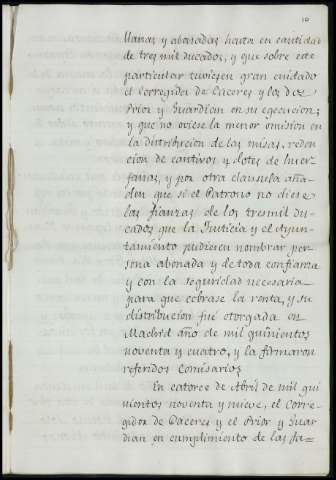 10
llanas y abonadas hasta en cantidad
de tres mil ducados, y que sobre este
particular tuviesen gran cuidado
el Corregidor de Caceres y los dos
Prior y Guardian en su egecucion;
y que no oviese la menor omision en
la distribucion de las misas, reden
cion de cautivos y dotes de huer-
fanas, y por otra clausula aña-
den que si el Patrono no diese
las fianzas de los tres mil du-
cados que la Justicia y el Ayun-
tamiento pudiesen nombrar per-
sona abonada y de toda confianza
y con la seguridad necesaria
para que cobrase la renta, y su
distribucion fué otorgada en
Madrid año de mil quinientos
noventa y cuatro, y la firmaron
referidos Comisarios
En catorce de Abril de mil qui
nientos noventa y nueve, el Corre-
gidor de Caceres y el Prior y Guar
dian en cumplimiento de las fa-